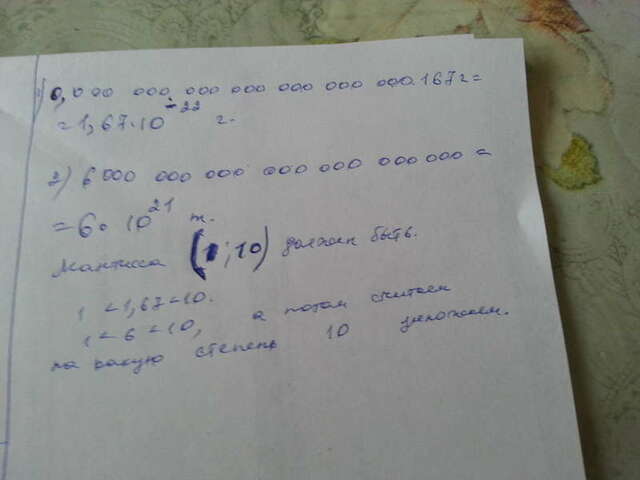 1) 0,000 000 000 000 000 000 000 167 г =
= 1,67 · 10⁻²² г.
2) 6 000 000 000 000 000 000 000 =
= 6 · 10²¹ т.
Мантисса (1; 10) должен быть.
1 < 1,67 < 10.
1 < 6 < 10, а потом считаем
на какую степень 10 умножаем.